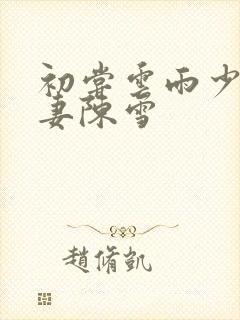 初嘗雲雨少
妻陳雪
趙脩凱